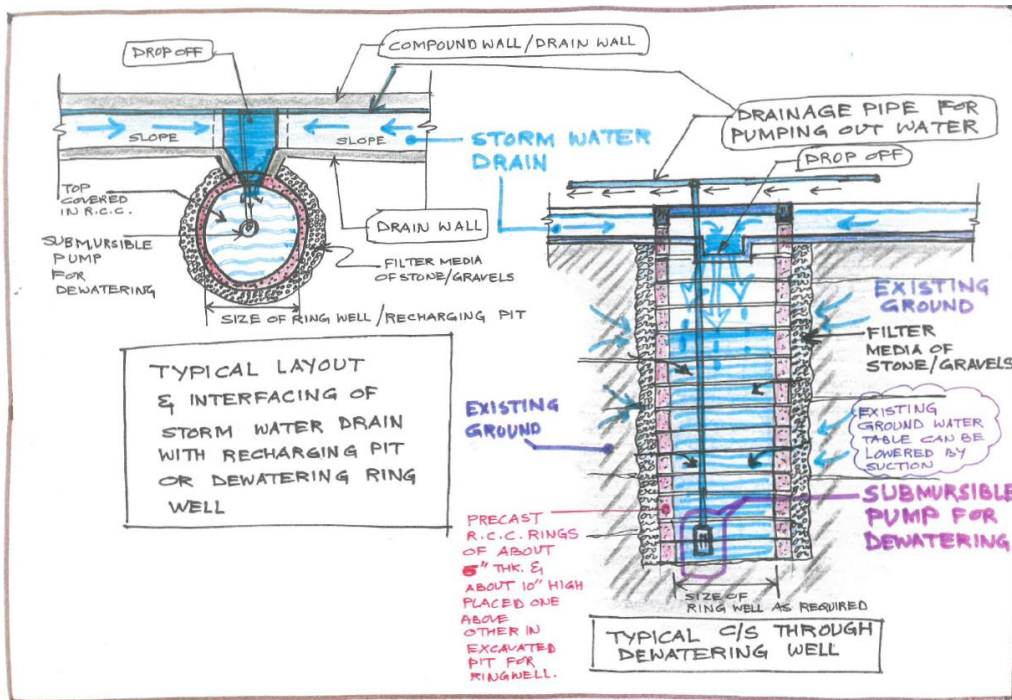 DROP OFF
COMPOUND WALL/DRAIN WALL
SLOPE
SLOPE
STORM WATER
DRAIN
TOP
COVERED
IN R.C.C.
SUBMURSIBLE
PUMP
FOR
DEWATERING
DRAIN WALL
FILTER MEDIA
OF STONE/GRAVELS
SIZE OF RING WELL/RECHARGING PIT
TYPICAL LAYOUT
& INTERFACING OF
STORM WATER DRAIN
WITH RECHARGING PIT
OR DEWATERING RING
WELL
DRAINAGE PIPE FOR
PUMPING OUT WATER
DROP OFF
EXISTING
GROUND
FILTER
MEDIA OF
STONE/GRAVELS
EXISTING
GROUND
EXISTING
GROUND WATER
TABLE CAN BE
LOWERED BY
SUCTION
SUBMURSIBLE
PUMP FOR
DEWATERING
PRECAST
R.C.C. RINGS
OF ABOUT
6" THK. &
ABOUT 10" HIGH
PLACED ONE
ABOVE
OTHER IN
EXCAVATED
PIT FOR
RINGWELL.
SIZE OF
RING WELL AS REQUIRED
TYPICAL C/S THROUGH
DEWATERING WELL